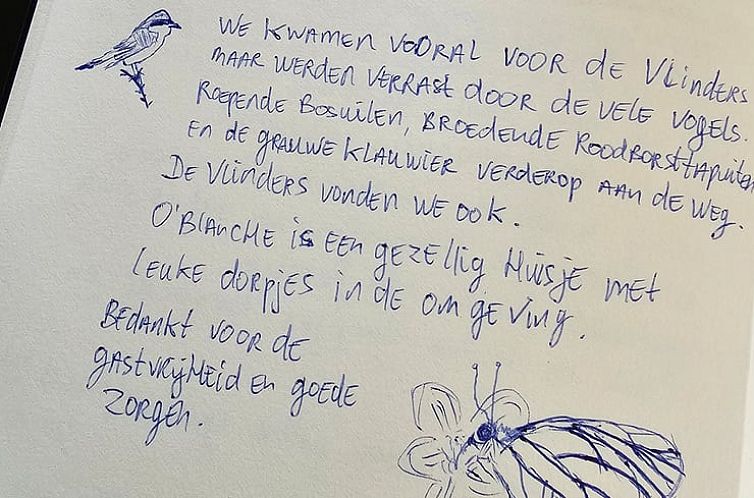 WE KWAMEN VOORAL VOOR DE VLINDERS
MAAR WERDEN VERRAST DOOR DE VELE VOGELS.
ROEPENDE BOSUILEN, BROEDENDE ROODBORSTTAPUITEN
EN DE GRAUWE KLAUWIER VERDEROP AAN DE WEG.
DE VLINDERS VONDEN WE OOK.
O'BLANCHE IS EEN GEZELLIG HUISJE MET
LEUKE DORPJES IN DE OMGEVING.
BEDANKT VOOR DE
GASTVRIJHEID EN GOEDE
ZORGEN.